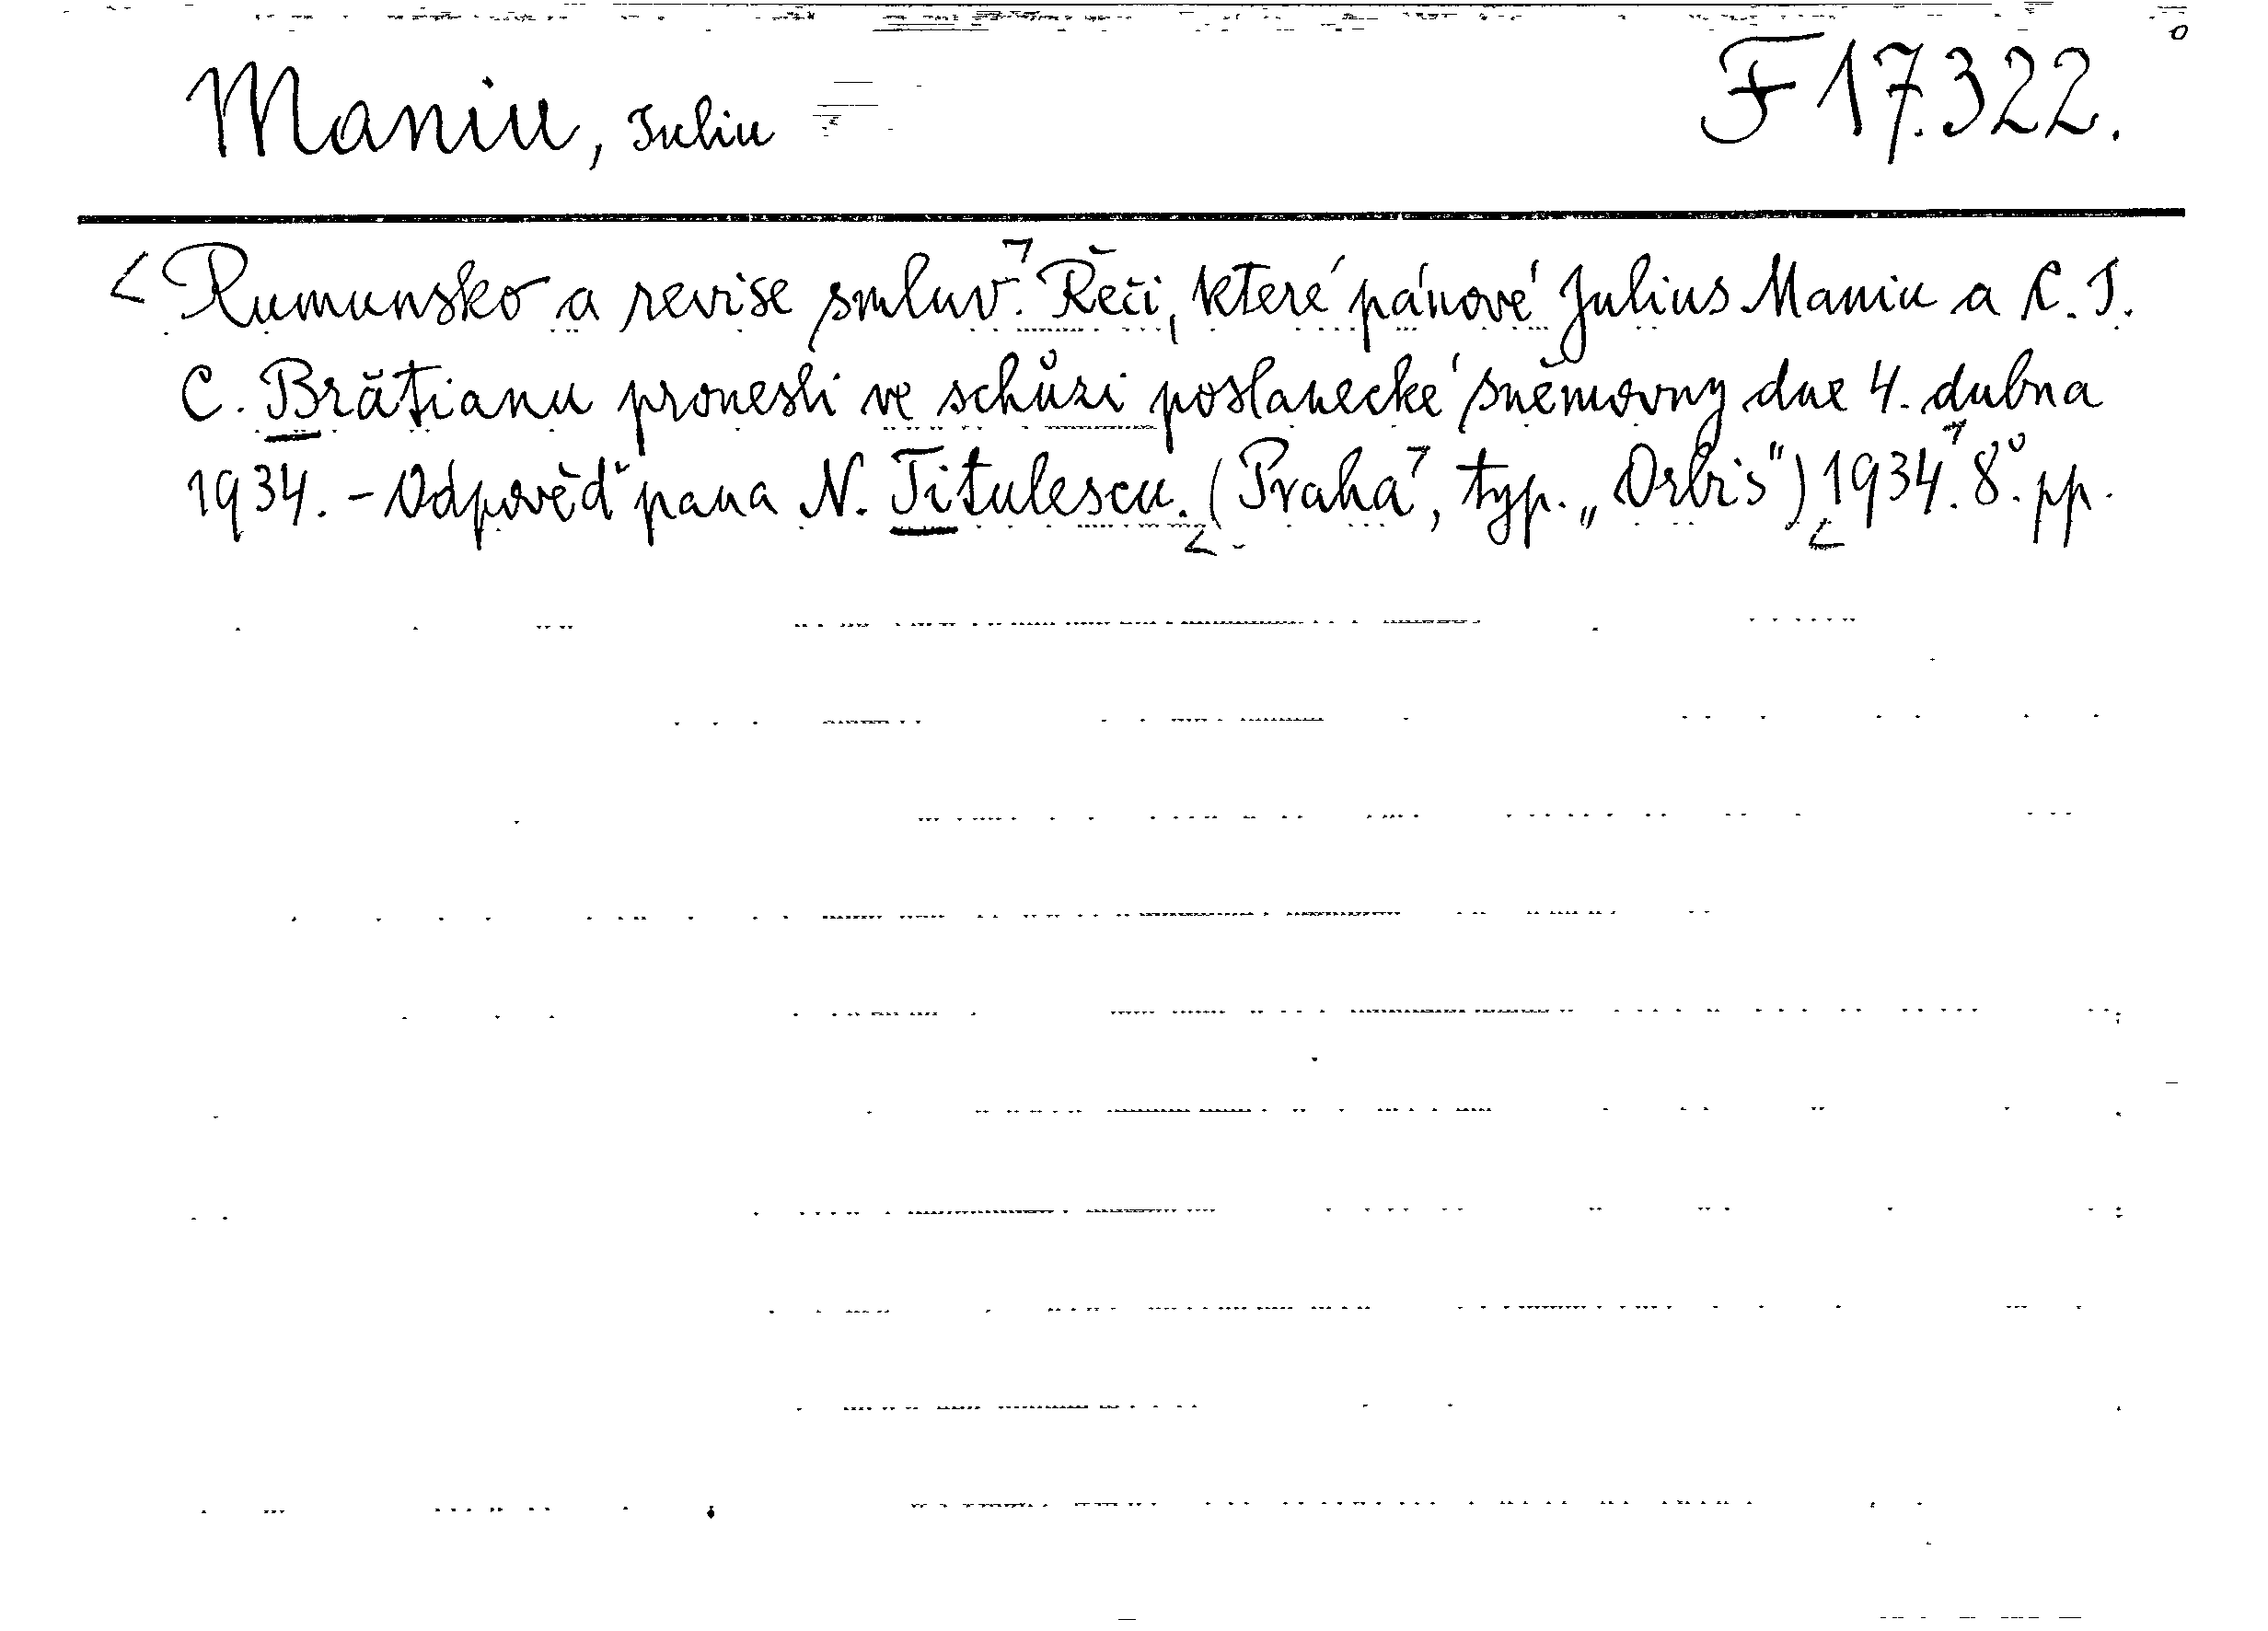 Maniu, Iuliu
F 17.322.
Rumunsko a revise smluv. Řeči, které pánové Julius Maniu a C. I.
C. Brătianu pronesli ve schůzi poslanecké sněmovny dne 4. dubna
1934. - Odpověď pana N. Titulescu. (Praha, typ. „Orbis") 1934. 8°. pp.